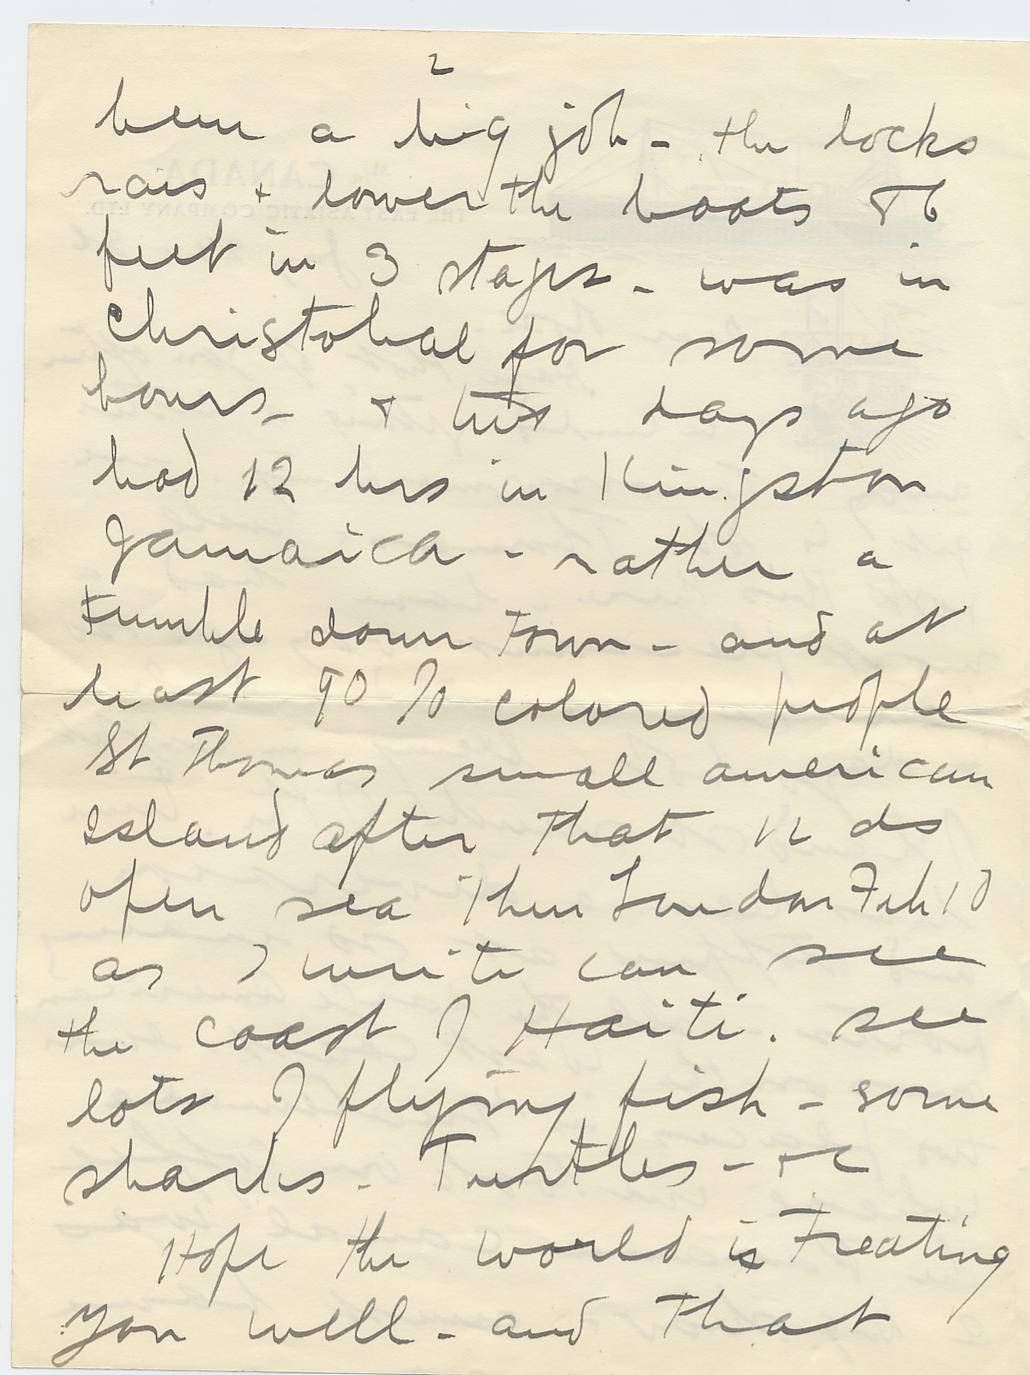 2
been a big job - the locks
rais + lower the boats 86
feet in 3 stages - was in
Christobal for some
hours - + two days ago
had 12 hrs in Kingston
Jamaica - rather a
tumble down town - and at
least 90 % colored people
St Thomas small american
island after that 12 ds
open sea Then London Feb 10
as I write can see
the coast of Haiti. see
lots of flying fish - some
sharks - Turtles - + c
Hope the world is Treating
you well - and that